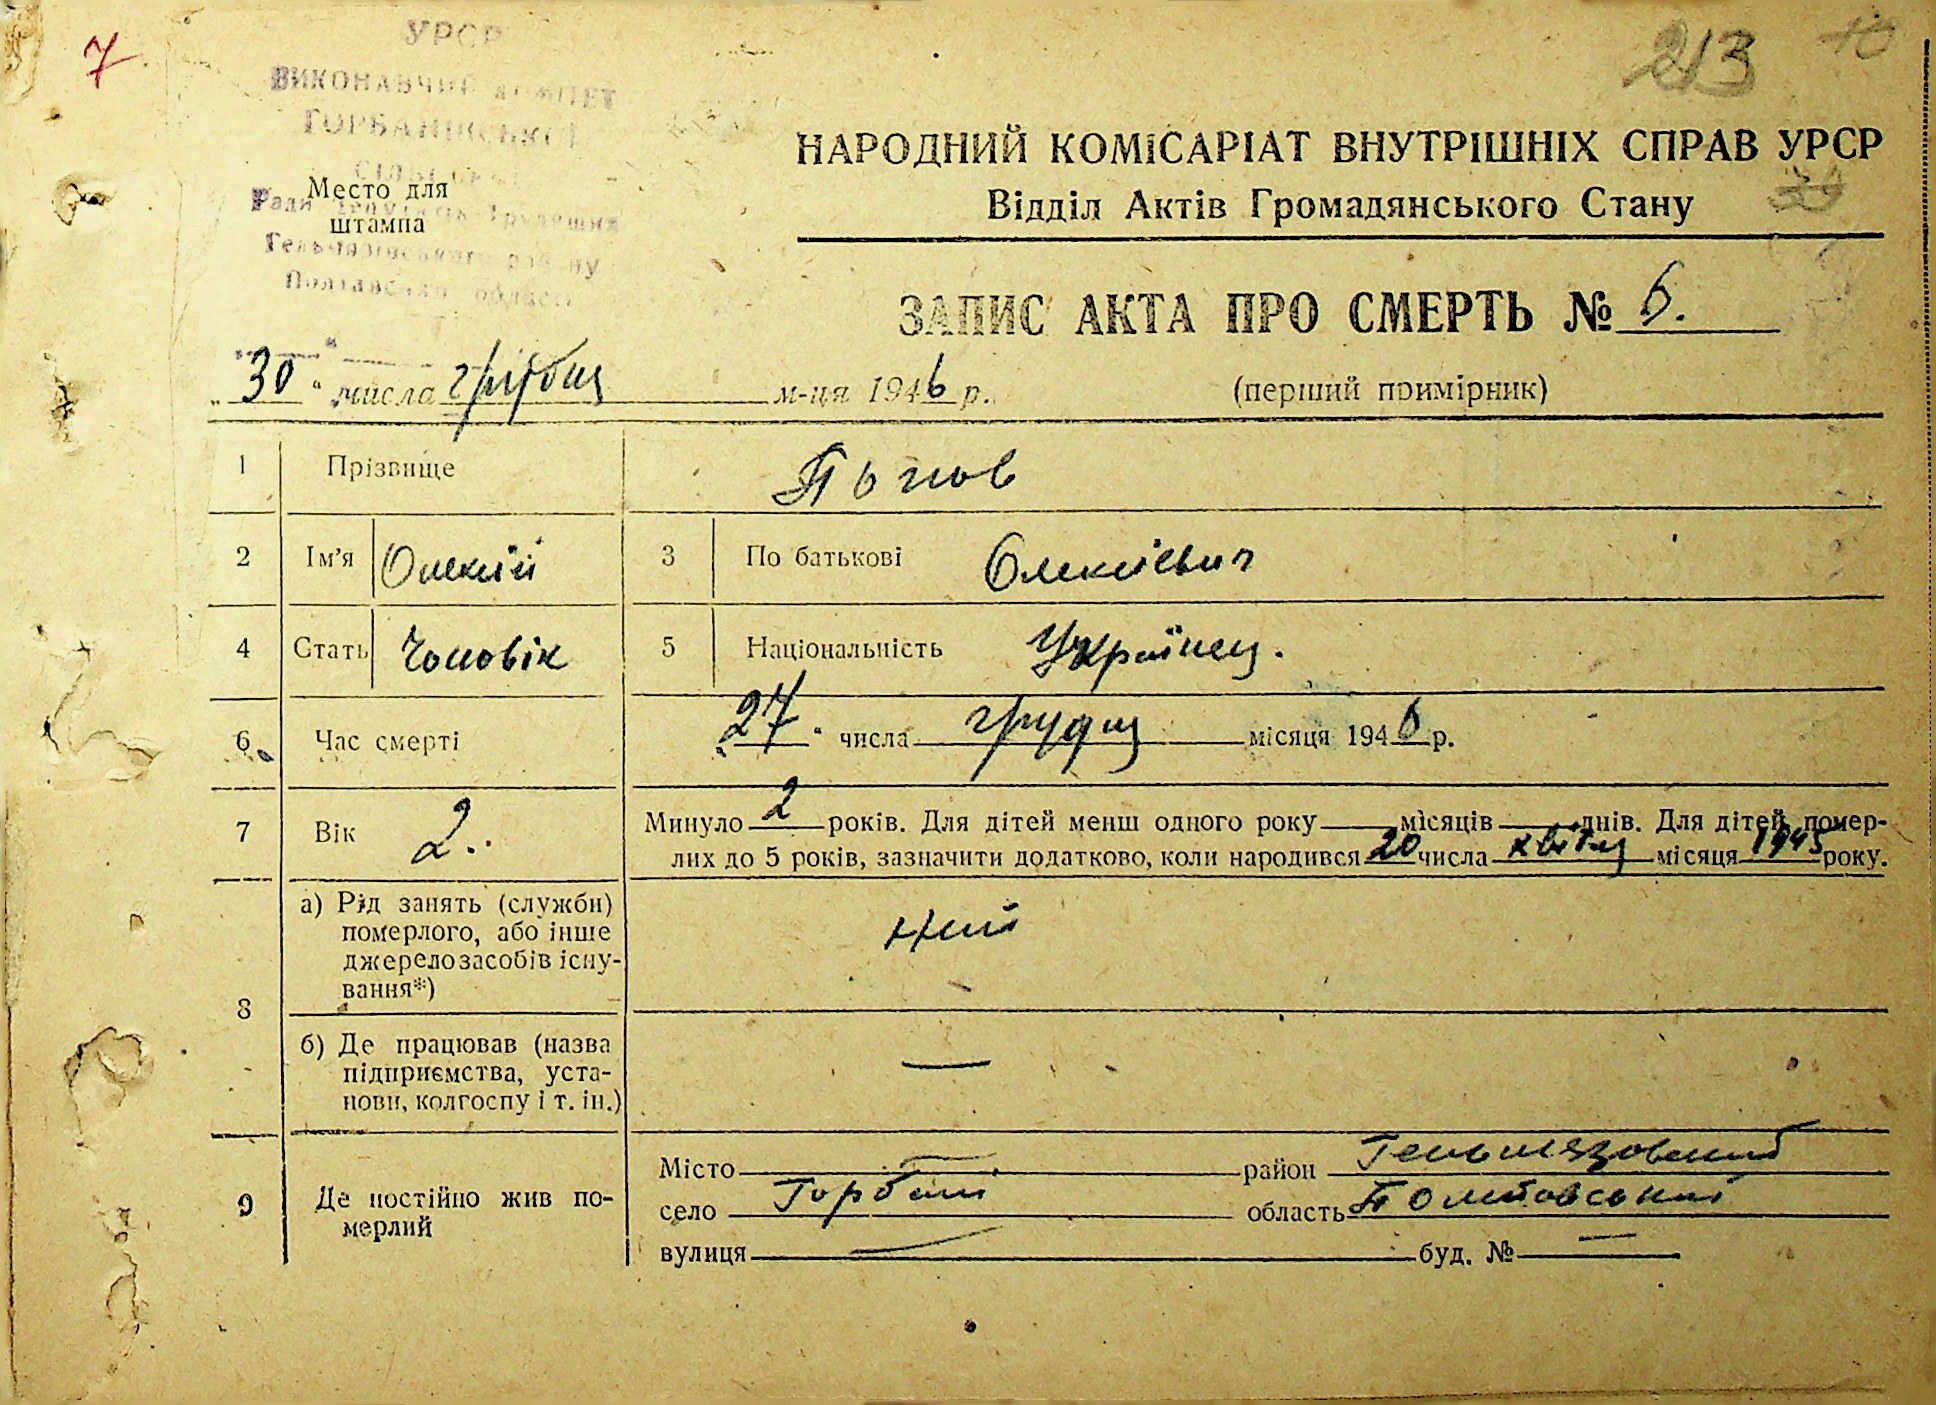 7
213
УРСР
ВИКОНАВЧИЙ КОМІТЕТ
ГОРБАНІВСЬКОЇ
Место для
штампа
Гельмязівського району
Полтавської області
НАРОДНИЙ КОМІСАРІАТ ВНУТРІШНІХ СПРАВ УРСР
Відділ Актів Громадянського Стану
ЗАПИС АКТА ПРО СМЕРТЬ № 6.
„30“ числа м-ця 1946 р.
(перший примірник)
1 Прізвище Попов
2 Ім'я Олексій 3 По батькові Олексієвич
4 Стать Чоловік 5 Національність Українец.
6 Час смерті „27“ числа грудня місяця 1946 р.
7 Вік 2. Минуло 2 років. Для дітей менш одного року місяців днів. Для дітей помер-
лих до 5 років, зазначити додатково, коли народився 20 числа квітня місяця 1945 року.
8 а) Рід занять (служби)
померлого, або інше
джерело засобів існу-
вання*)
б) Де працював (назва —
підприємства, уста-
нови, колгоспу і т. ін.)
9 Де постійно жив по-
мерлий
Місто — район Гельмязовский
село Горбані область Полтовський
вулиця — буд. № —